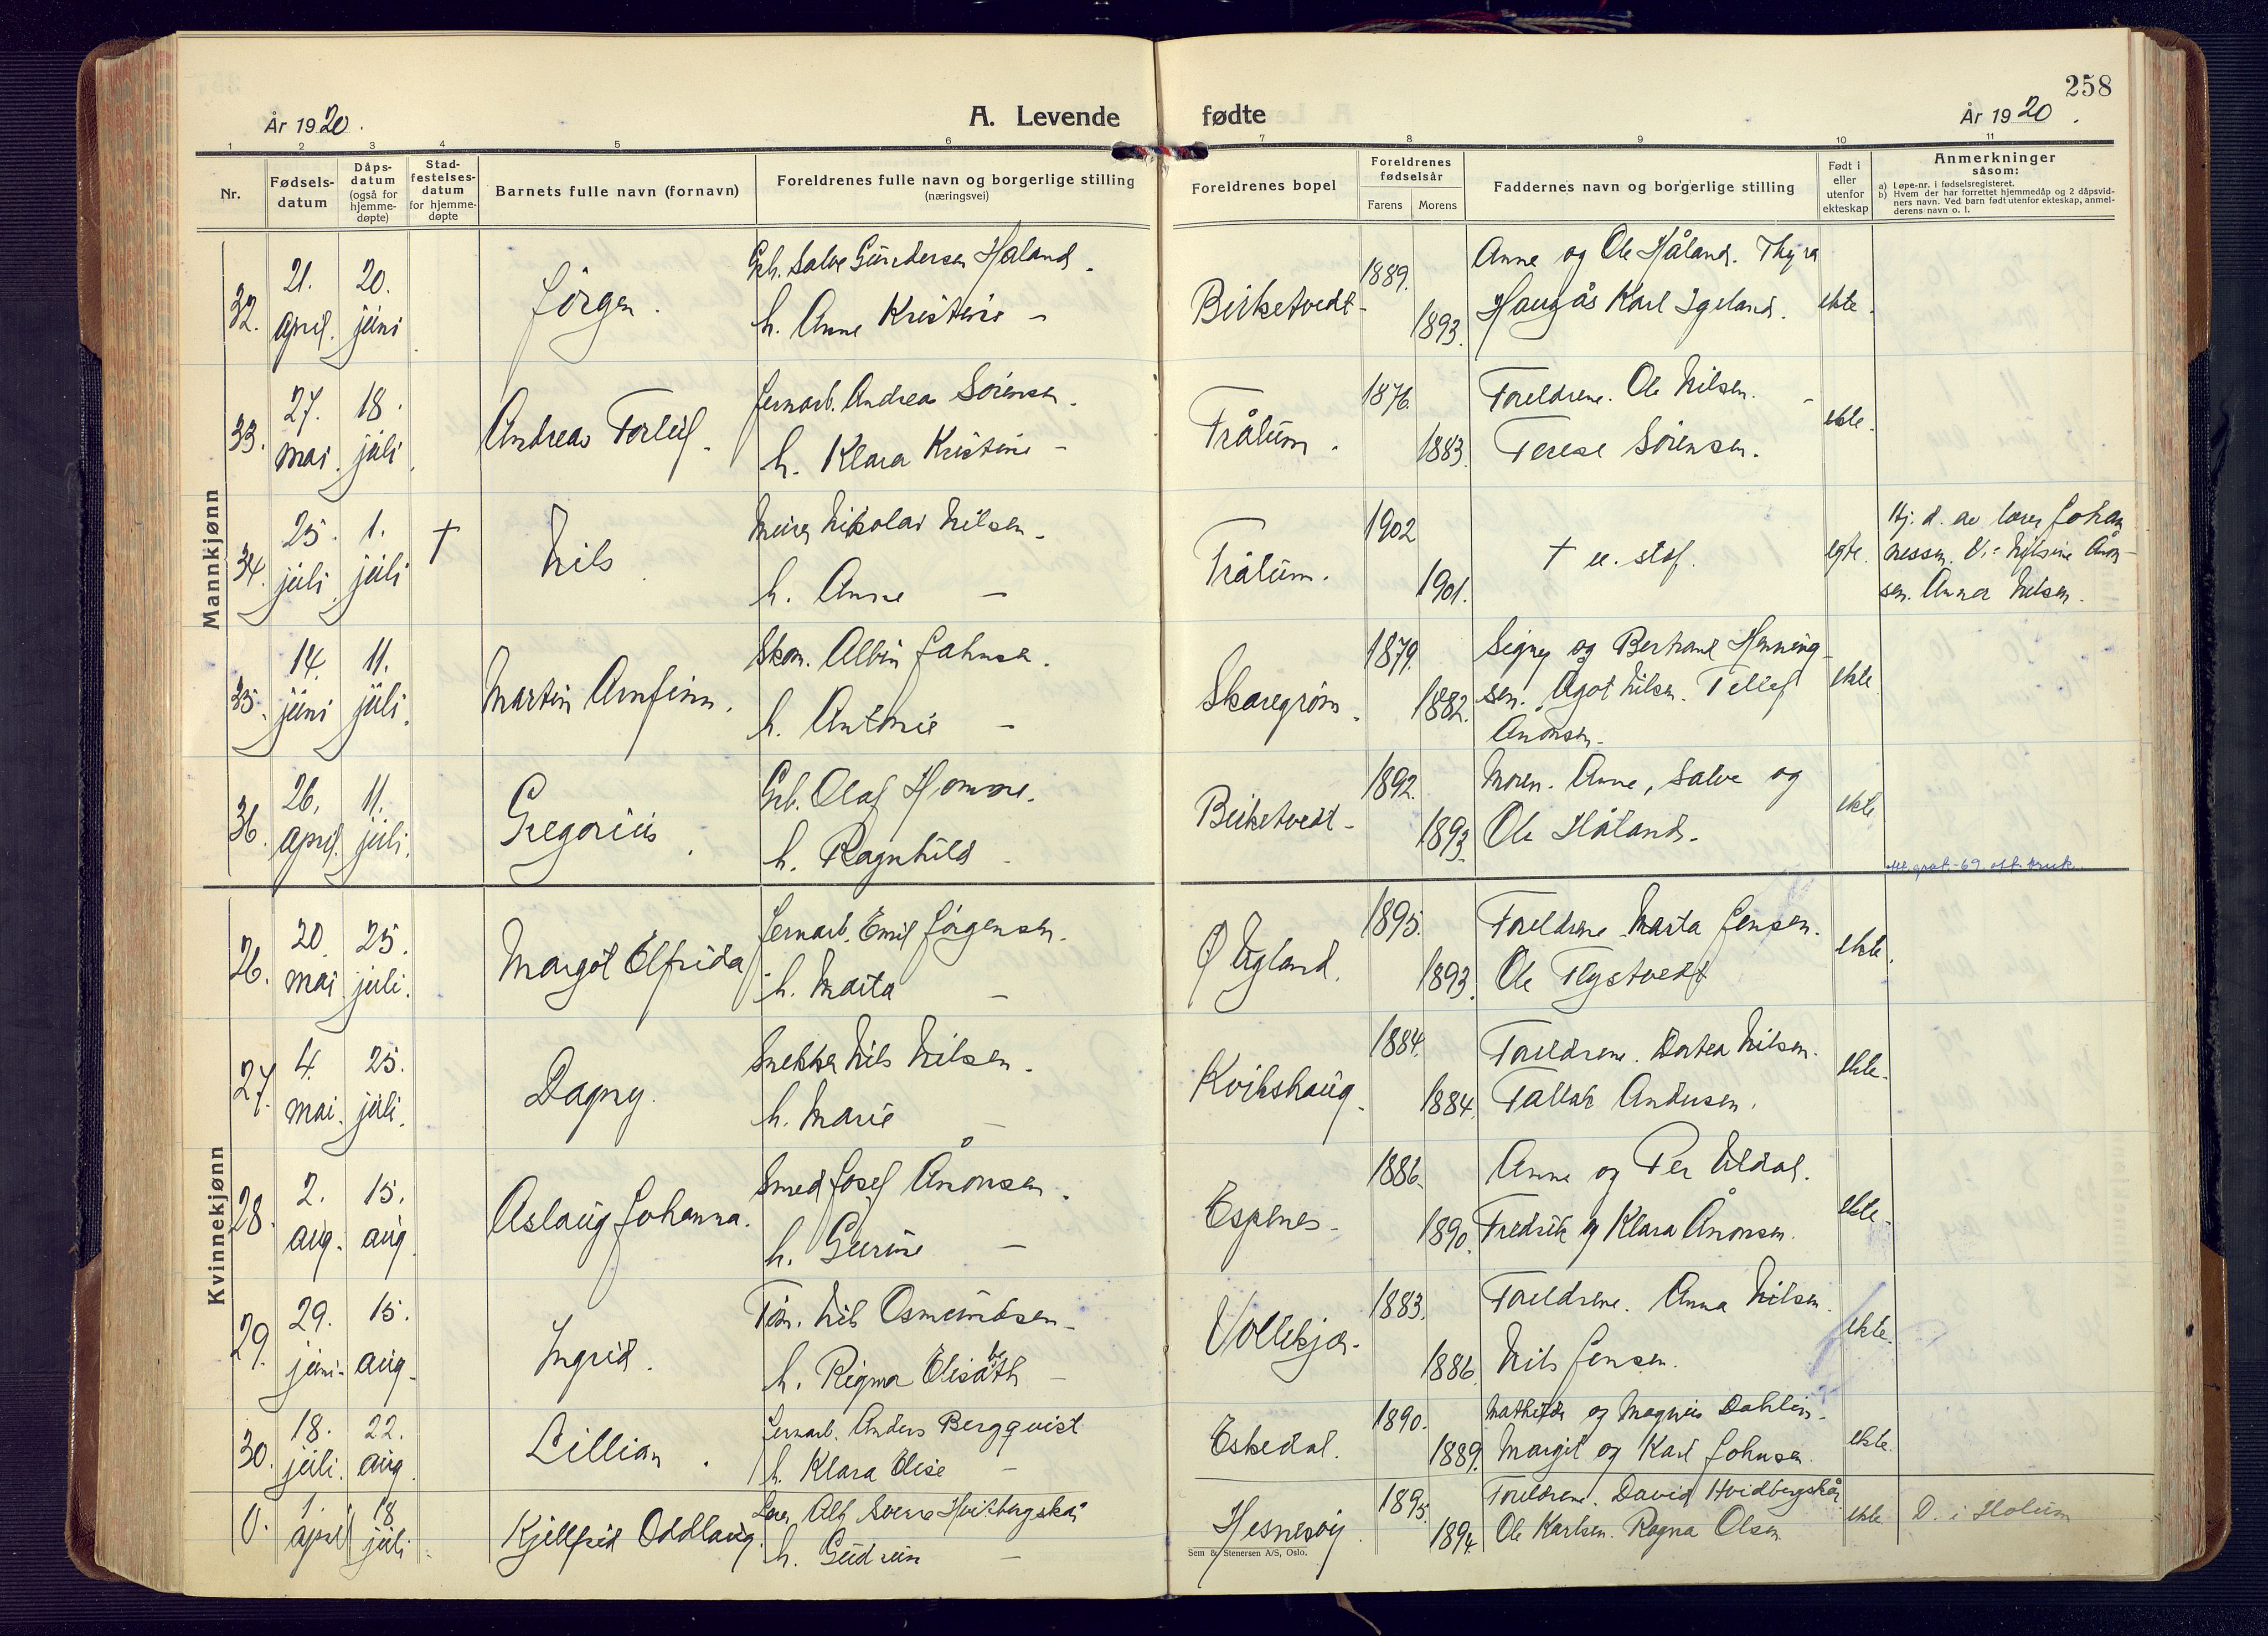 258
År 1920.
A. Levende fødte
År 1920.
1 2 3 4 5 6 7 8 9 10 11
Nr.
Fødsels-
datum
Dåps-
datum
(også for
hjemme-
døpte)
Stad-
festelses-
datum
for hjemme-
døpte
Barnets fulle navn (fornavn)
Foreldrenes fulle navn og borgerlige stilling
(næringsvei)
Foreldrenes bopel
Foreldrenes
fødselsår
Farens Morens
Faddernes navn og borgerlige stilling
Født i
eller
utenfor
ekteskap
Anmerkninger
såsom:
a) Løpe-nr. i fødselsregisteret.
b) Hvem der har forrettet hjemmedåp og 2 dåpsvid-
ners navn. Ved barn født utenfor ekteskap, anmel-
derens navn o. l.
Mannkjønn
32. 21. april. 20. juni Jörgen. Grb. Salve Gundersen Håland.
h. Anne Kristine –
Birketvedt – 1889. 1893. Anne og Ole Håland. Thyra
Haugås Karl Igeland. ekte.
33. 27. mai. 18. juli. Andreas Torleif. Jernarb. Andreas Sörensen.
h. Klara Kristine –
Trålum. 1876. 1883. Foreldrene. Ole Nilsen.
Terese Sörensen. ekte.
34. 25. juli. 1. juli † Nils Nikolai Nilsen.
h. Anne –
Trålum. 1902 1901. † egte. Hj. d. av lærer Johan
nessen. V: Nilsine Åon-
sen. Anna Nilsen.
35. 14. juni 11. juli. Martin Arnfinn. Skom. Albin Jahnsen.
h. Antonie –
Skaregrøm. 1879. 1882. Signy og Bertrand Henning-
sen. Agot Nilsen. Tellef
Ånonsen. ekte
36. 26. april. 11. juli. Gregorius. Grb. Olaf Homme.
h. Ragnhild –
Birketvedt – 1892. 1893. Moren. Anne, Salve og
Ole Håland. ekte
Kvinnekjønn
26. 20. mai 25. juli. Margot Elfrida Jernarb. Emil Jörgensen.
h. Marta –
Ø Ugland. 1895. 1893. Foreldrene Marta Jensen.
Ole Flystvedt ekte.
27. 4. mai. 25. juli. Dagny. Snekker Nils Nilsen.
h. Marie –
Kvikshaug. 1884. 1884. Foreldrene. Dortea Nilsen.
Tallak Andersen. ekte.
28. 2. aug. 15. aug Aslaug Johanna. Smed Josef Ånonsen.
h. Gurine –
Espenes. 1886. 1890. Anne og Per Uldal.
Fredrik og Klara Ånonsen. ekte.
29. 29. juni. 15. aug. Ingrid. Töm. Nils Osmundsen –
h. Rigmor Elisabeth –
Vollekjær. 1883. 1886 Foreldrene. Anna Nilsen.
Nils Jensen. ekte.
30. 18. juli. 22. aug. Lillian. Jernarb. Anders Bergqvist
h. Klara Elise –
Eskedal. 1890. 1889. Mathilde og Magnus Dahlin.
Margit og Karl Johnsen. ekte.
0. 1. april 18 juli. Kjellfrid Oddlaug. Lærer Alf Sverre Hvidbergskår
h. Gudrun –
Hesnesöy. 1895. 1894. Foreldrene. David Hvidbergskår
Ole Karlsen. Ragna Olsen ekte. D. i Holum
Sem & Stenersen A/S, Oslo.